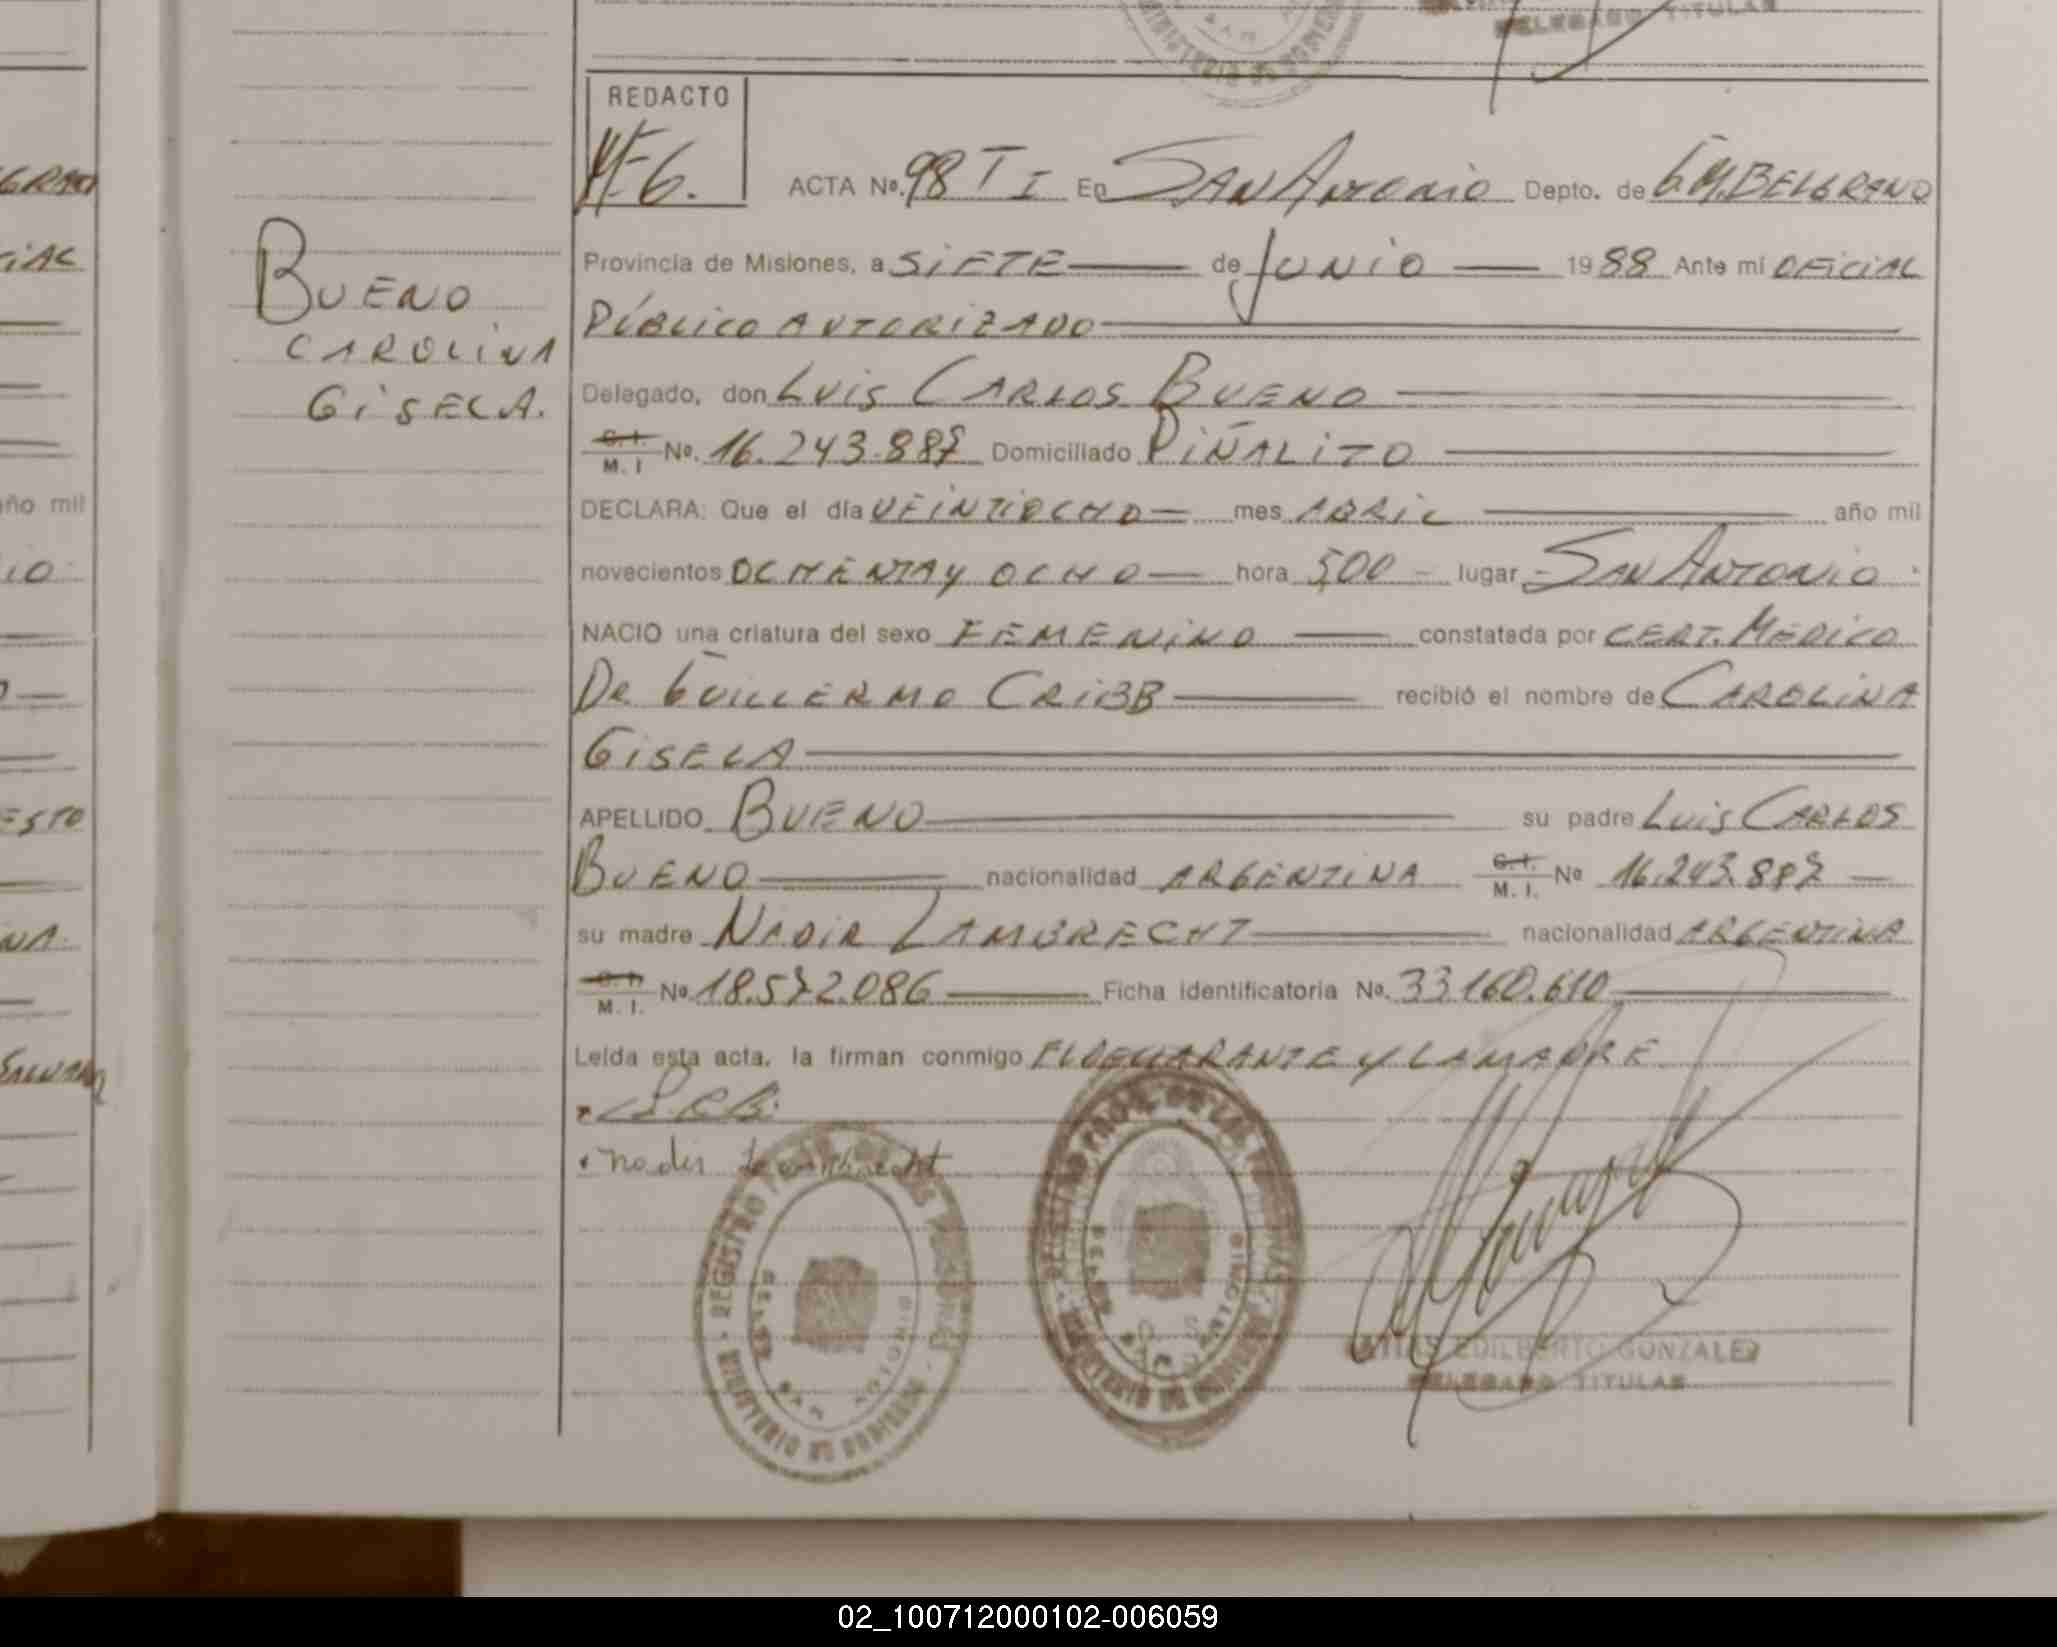 DELEGADO TITULAR
REDACTO
ACTA No. 98 T I En SAN ANTONIO Depto. de G.M.BELGRANO
Provincia de Misiones, a SIETE de JUNIO 1988 Ante mí OFICIAL
PÚBLICO AUTORIZADO
BUENO
CAROLINA
GISELA.
Delegado, don LUIS CARLOS BUENO
C.I.
M. I No. 16.243.887 Domiciliado PIÑALITO
DECLARA: Que el día VEINTIOCHO mes ABRIL año mil
novecientos OCHENTA y OCHO hora 5,00 lugar SAN ANTONIO
NACIO una criatura del sexo FEMENINO constatada por CERT. MÉDICO
DR GUILLERMO CRIBB recibió el nombre de CAROLINA
GISELA
APELLIDO BUENO su padre LUIS CARLOS
BUENO nacionalidad ARGENTINA C.I.
M. I. No 16.243.887
su madre NADIR LAMBRECHT nacionalidad ARGENTINA
C.I.
M. I. No 18.572.086 Ficha identificatoria No. 33.160.610
Leída esta acta, la firman conmigo EL DECLARANTE y LA MADRE
L.C.B.
nadir Lambrecht
REGISTRO PROV. DE LAS PERSONAS
MINISTERIO DE GOBIERNO
SAN ANTONIO
EDILBERTO GONZALEZ
DELEGADO TITULAR
GRANO
CIAL
año mil
IO
ESTO
NA.
02_100712000102-006059